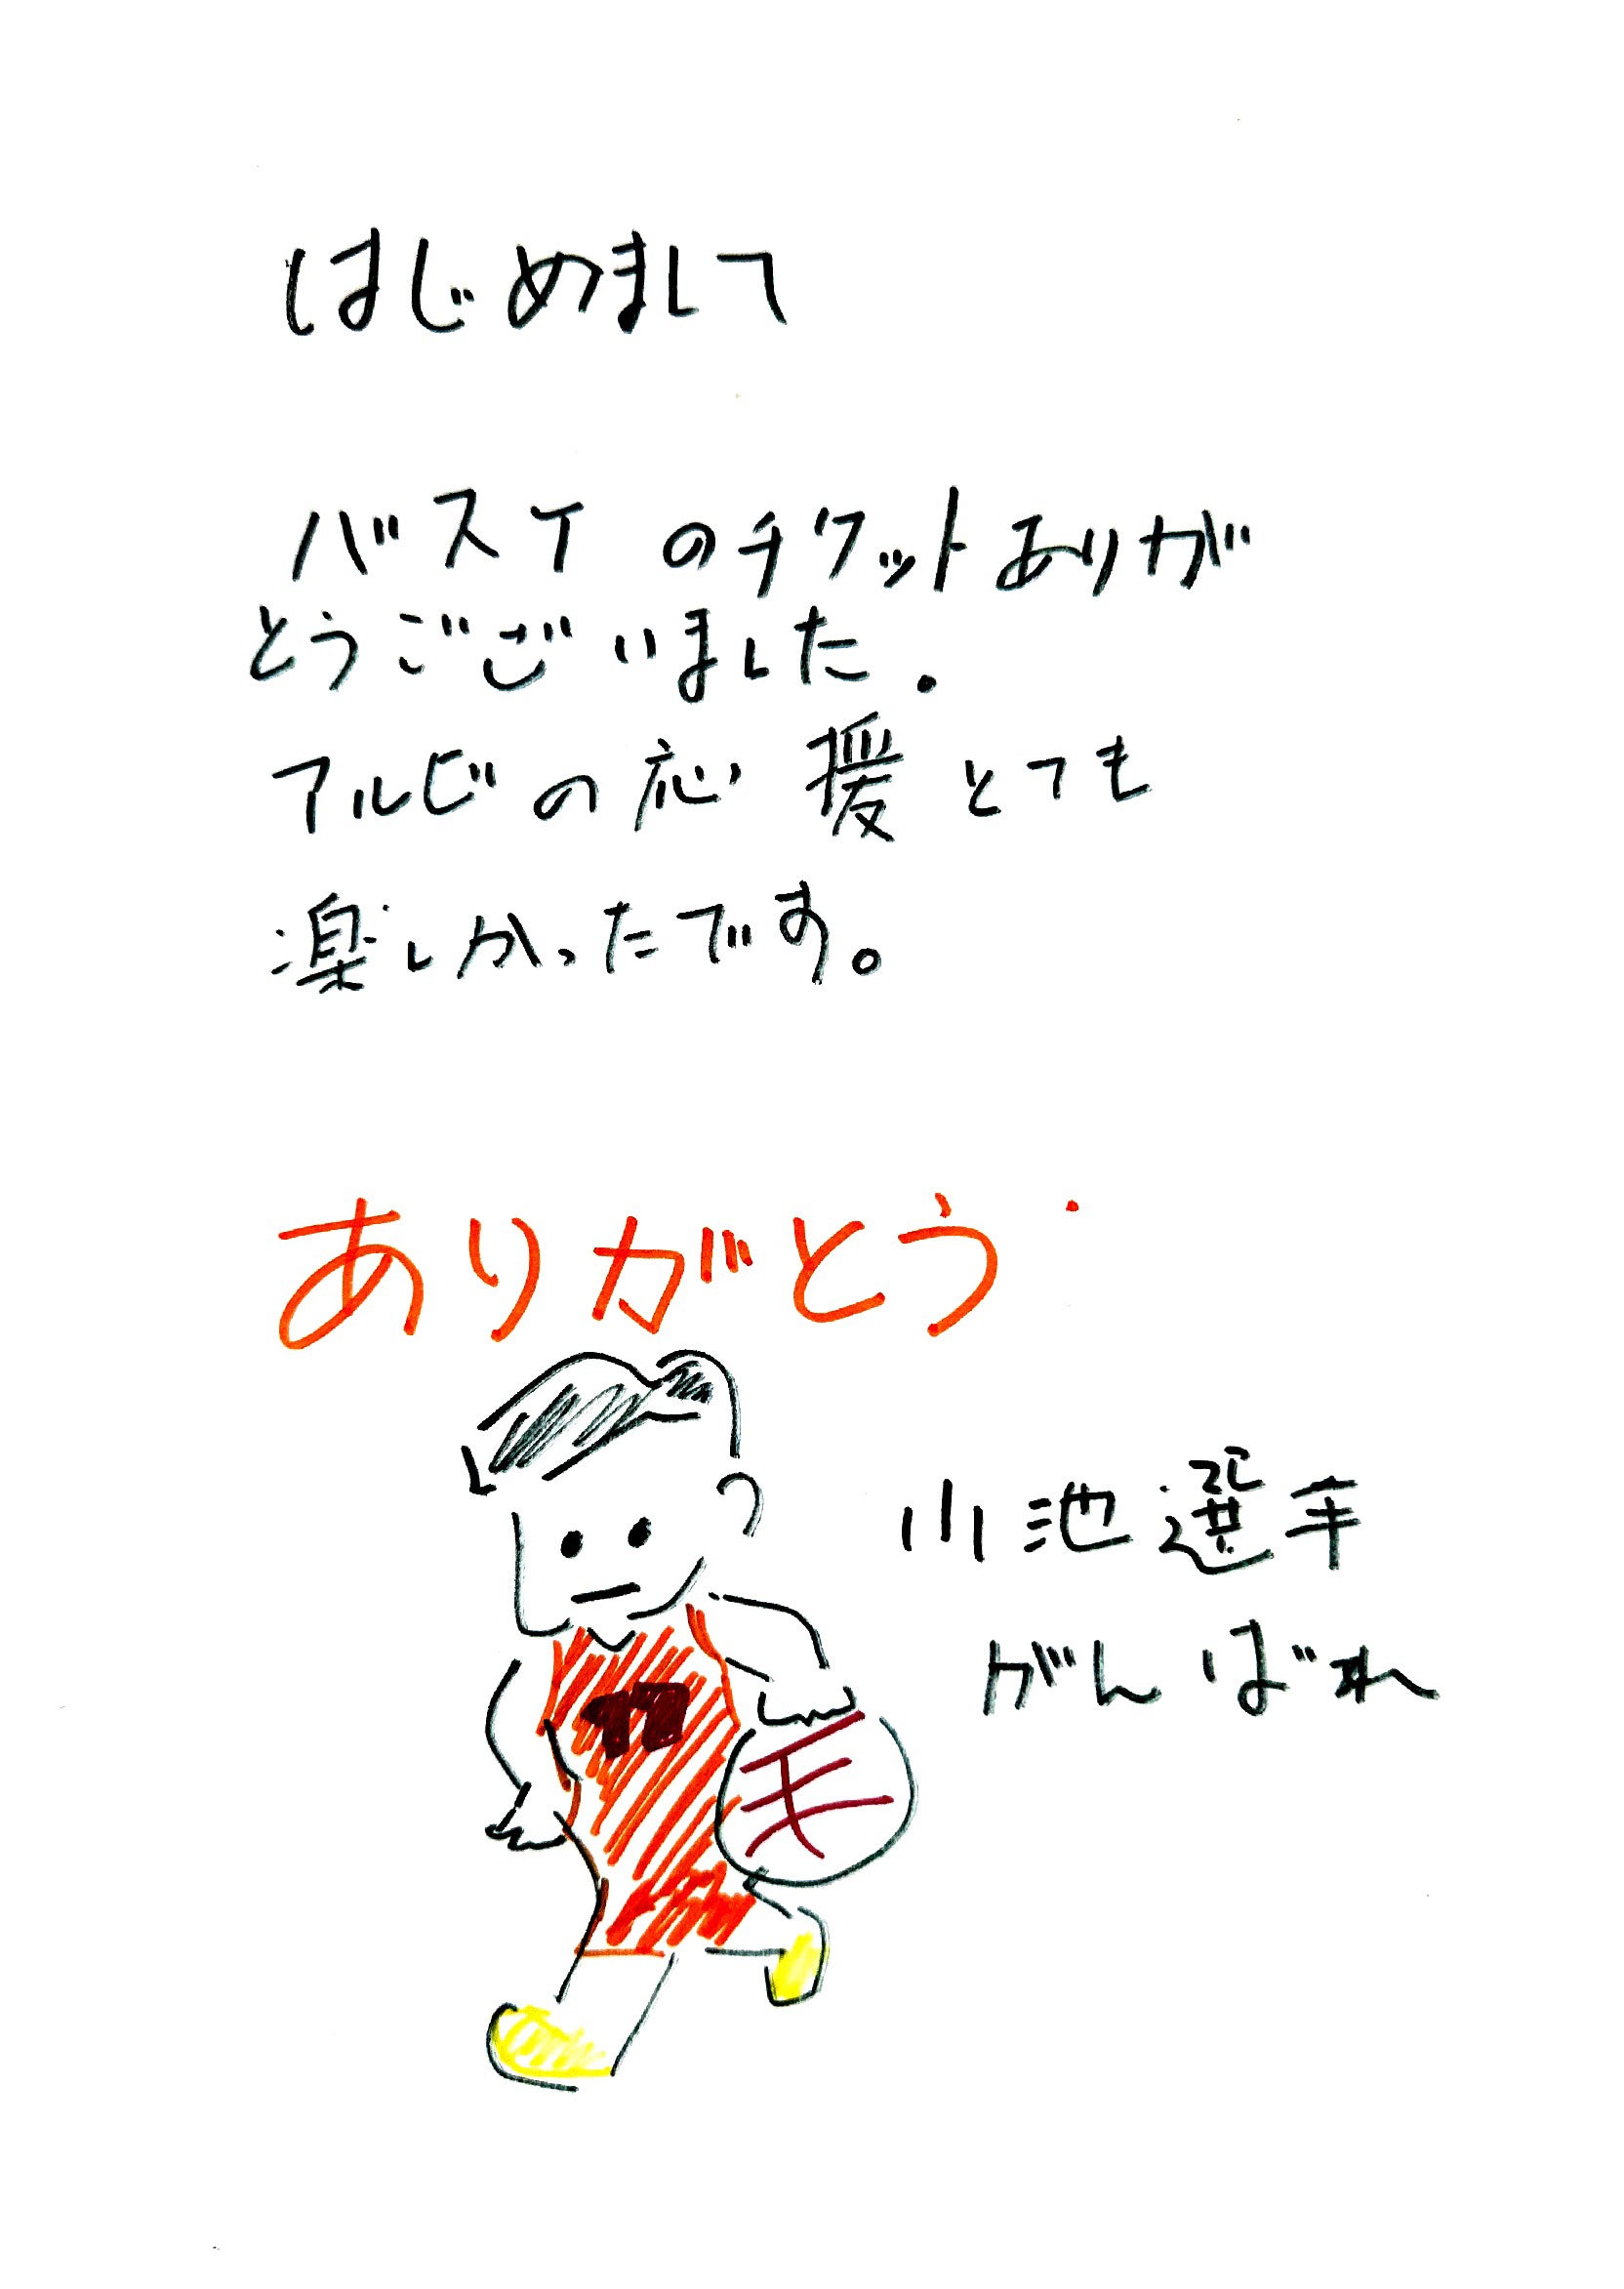 はじめまして
バスケのチケットありが
とうございました.
アルビの応援とても
楽しかったです。
ありがとう
17
小池選手
がんばれ